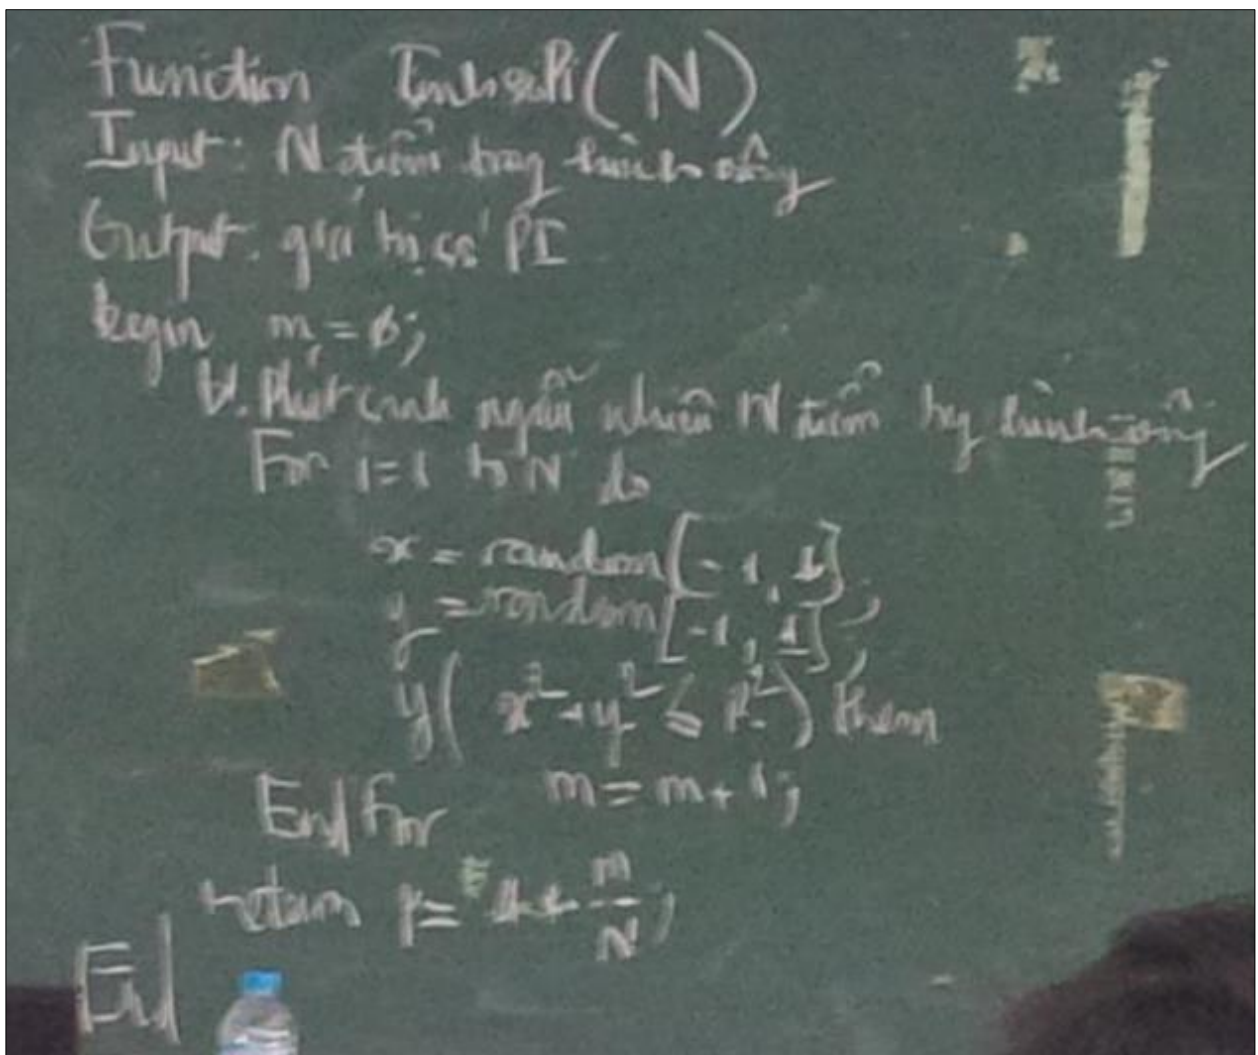 Function TínhsốPi(N)
Input: N điểm trong hình vuông
Output: giá trị số PI
begin m = 0;
Phát sinh ngẫu nhiên N điểm trong hình vuông
For i=1 to N do
x = random[-1, 1];
y = random[-1, 1];
if( x² + y² ≤ R² ) then
m = m + 1;
End For
return p = 4 * m/N;
End